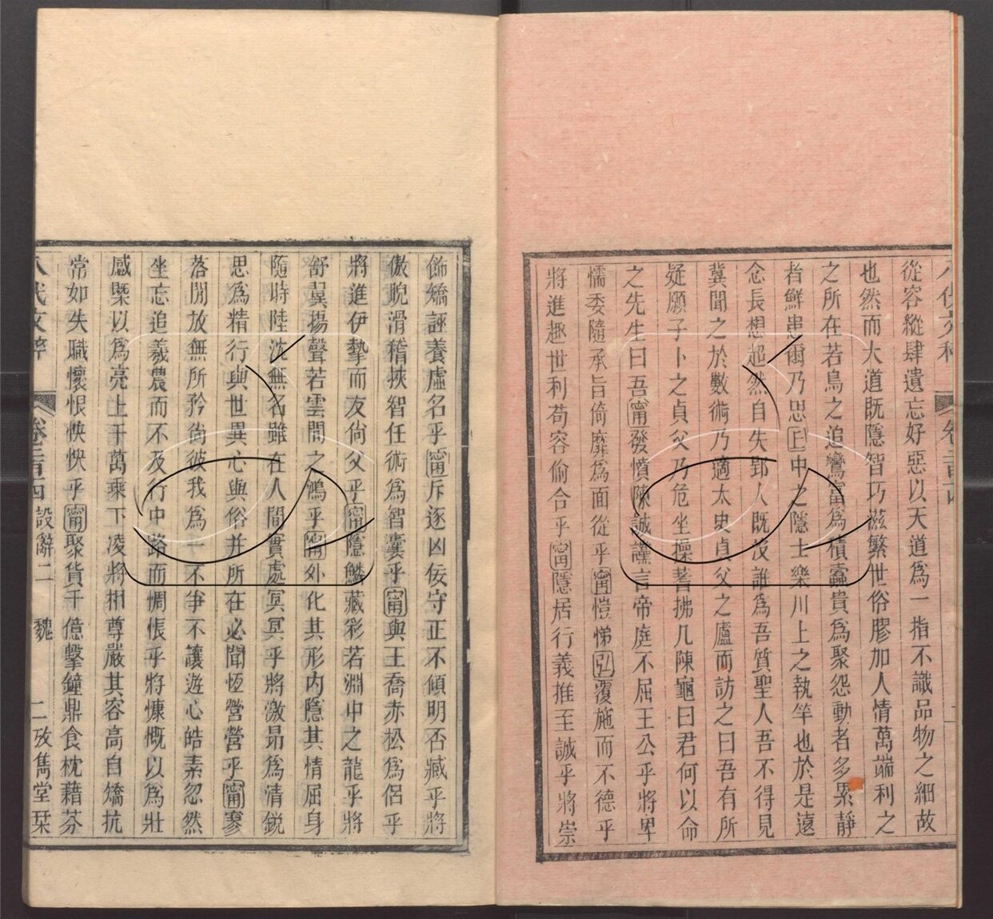 從容縱肆遺忘好惡以天道爲一指不識品物之細故
也然而大道既隱智巧滋繁世俗膠加人情萬端利之
之所在若鳥之追鸞富爲積蠹貴爲聚怨動者多累靜
者鮮患爾乃思丘中之隱士樂川上之執竿也於是遠
念長想超然自失郢人既没誰爲吾質聖人吾不得見
冀聞之於數術乃適太史貞父之廬而訪之曰吾有所
疑願子卜之貞父乃危坐揲蓍拂几陳龜曰君何以命
之先生曰吾甯發憤陳誠讜言帝庭不屈王公乎將卑
懦委隨承旨倚靡爲面從乎甯愷悌弘覆施而不德乎
將進趣世利苟容偷合乎甯隱居行義推至誠乎將崇
飾矯誣養虛名乎甯斥逐凶佞守正不傾明否臧乎將
傲睨滑稽挾智任術爲智囊乎甯與王喬赤松爲侶乎
將進伊摯而友尚父乎甯隱鱗藏彩若淵中之龍乎將
舒翼揚聲若雲間之鴻乎甯外化其形内隱其情屈身
隨時陸沈無名雖在人間實處冥冥乎將激昂爲清銳
思爲精行與世異心與俗并所在必聞恆營營乎甯寥
落閒放無所矜尚彼我爲一不爭不讓遊心皓素忽然
坐忘追羲農而不及行中路而惆悵乎將慷慨以爲壯
感槩以爲亮上干萬乘下凌將相尊嚴其容高自矯抗
常如失職懷恨怏怏乎甯聚貨千億擊鐘鼎食枕藉芬
八代文粹 卷二百四 設辭二 魏 二 攷雋堂栞